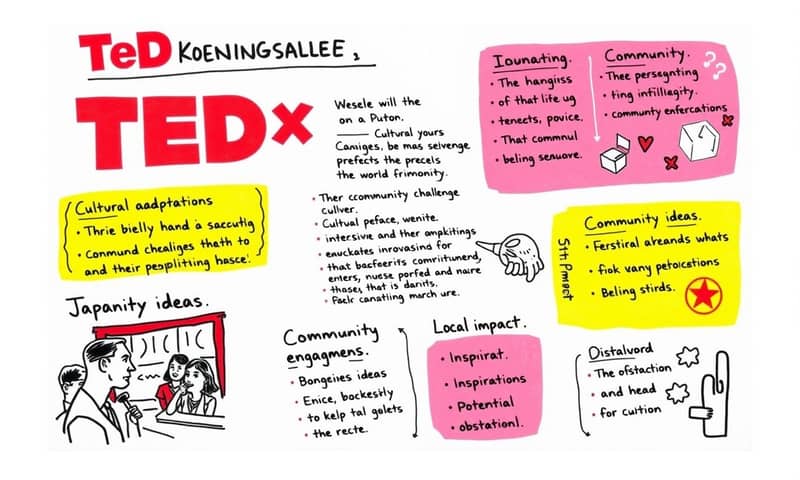 TeD KOENINGSALLEE,
TEDx
Wesele will the
on a Puton.
Cultural yours
Caniges, be mas seivenge
prefects the precels
the world frimonity.
Iounating.
• The hangiss
• of that life ug
• tenects, povice.
• That commnul
• beling senuove.
Community.
• Thee persegnting
• ting infilliagity.
• communty enfercations
??
Cultural aadptations
• Thrie bielly hand a saccutig
• Conmund chealiges thath to
and their pesplitting hasce!
• Ther ccommunity challenge
culiver.
• Cultual peface, wenite.
• intersive and ther ampkitings
• enuckates inrovasind for
• that bacfeerits comriitunend,
enters, nuese porfed and naire
• thases, that is darits.
• Fackr canatling march ure.
Community ideas.
• Ferstiral alreands whats
• fiok vany petoicstions
• Beling stirds.
Japanity ideas.
Community
engagmens.
• Bongeiies ideas
• Enice, bockestly
• to kelp tal galets
• the recte.
Local impact.
• Inspiirat.
• Inspirations
• Potential
• obstationl.
Distalvord
• The ofstaction
• and head
• for cuition